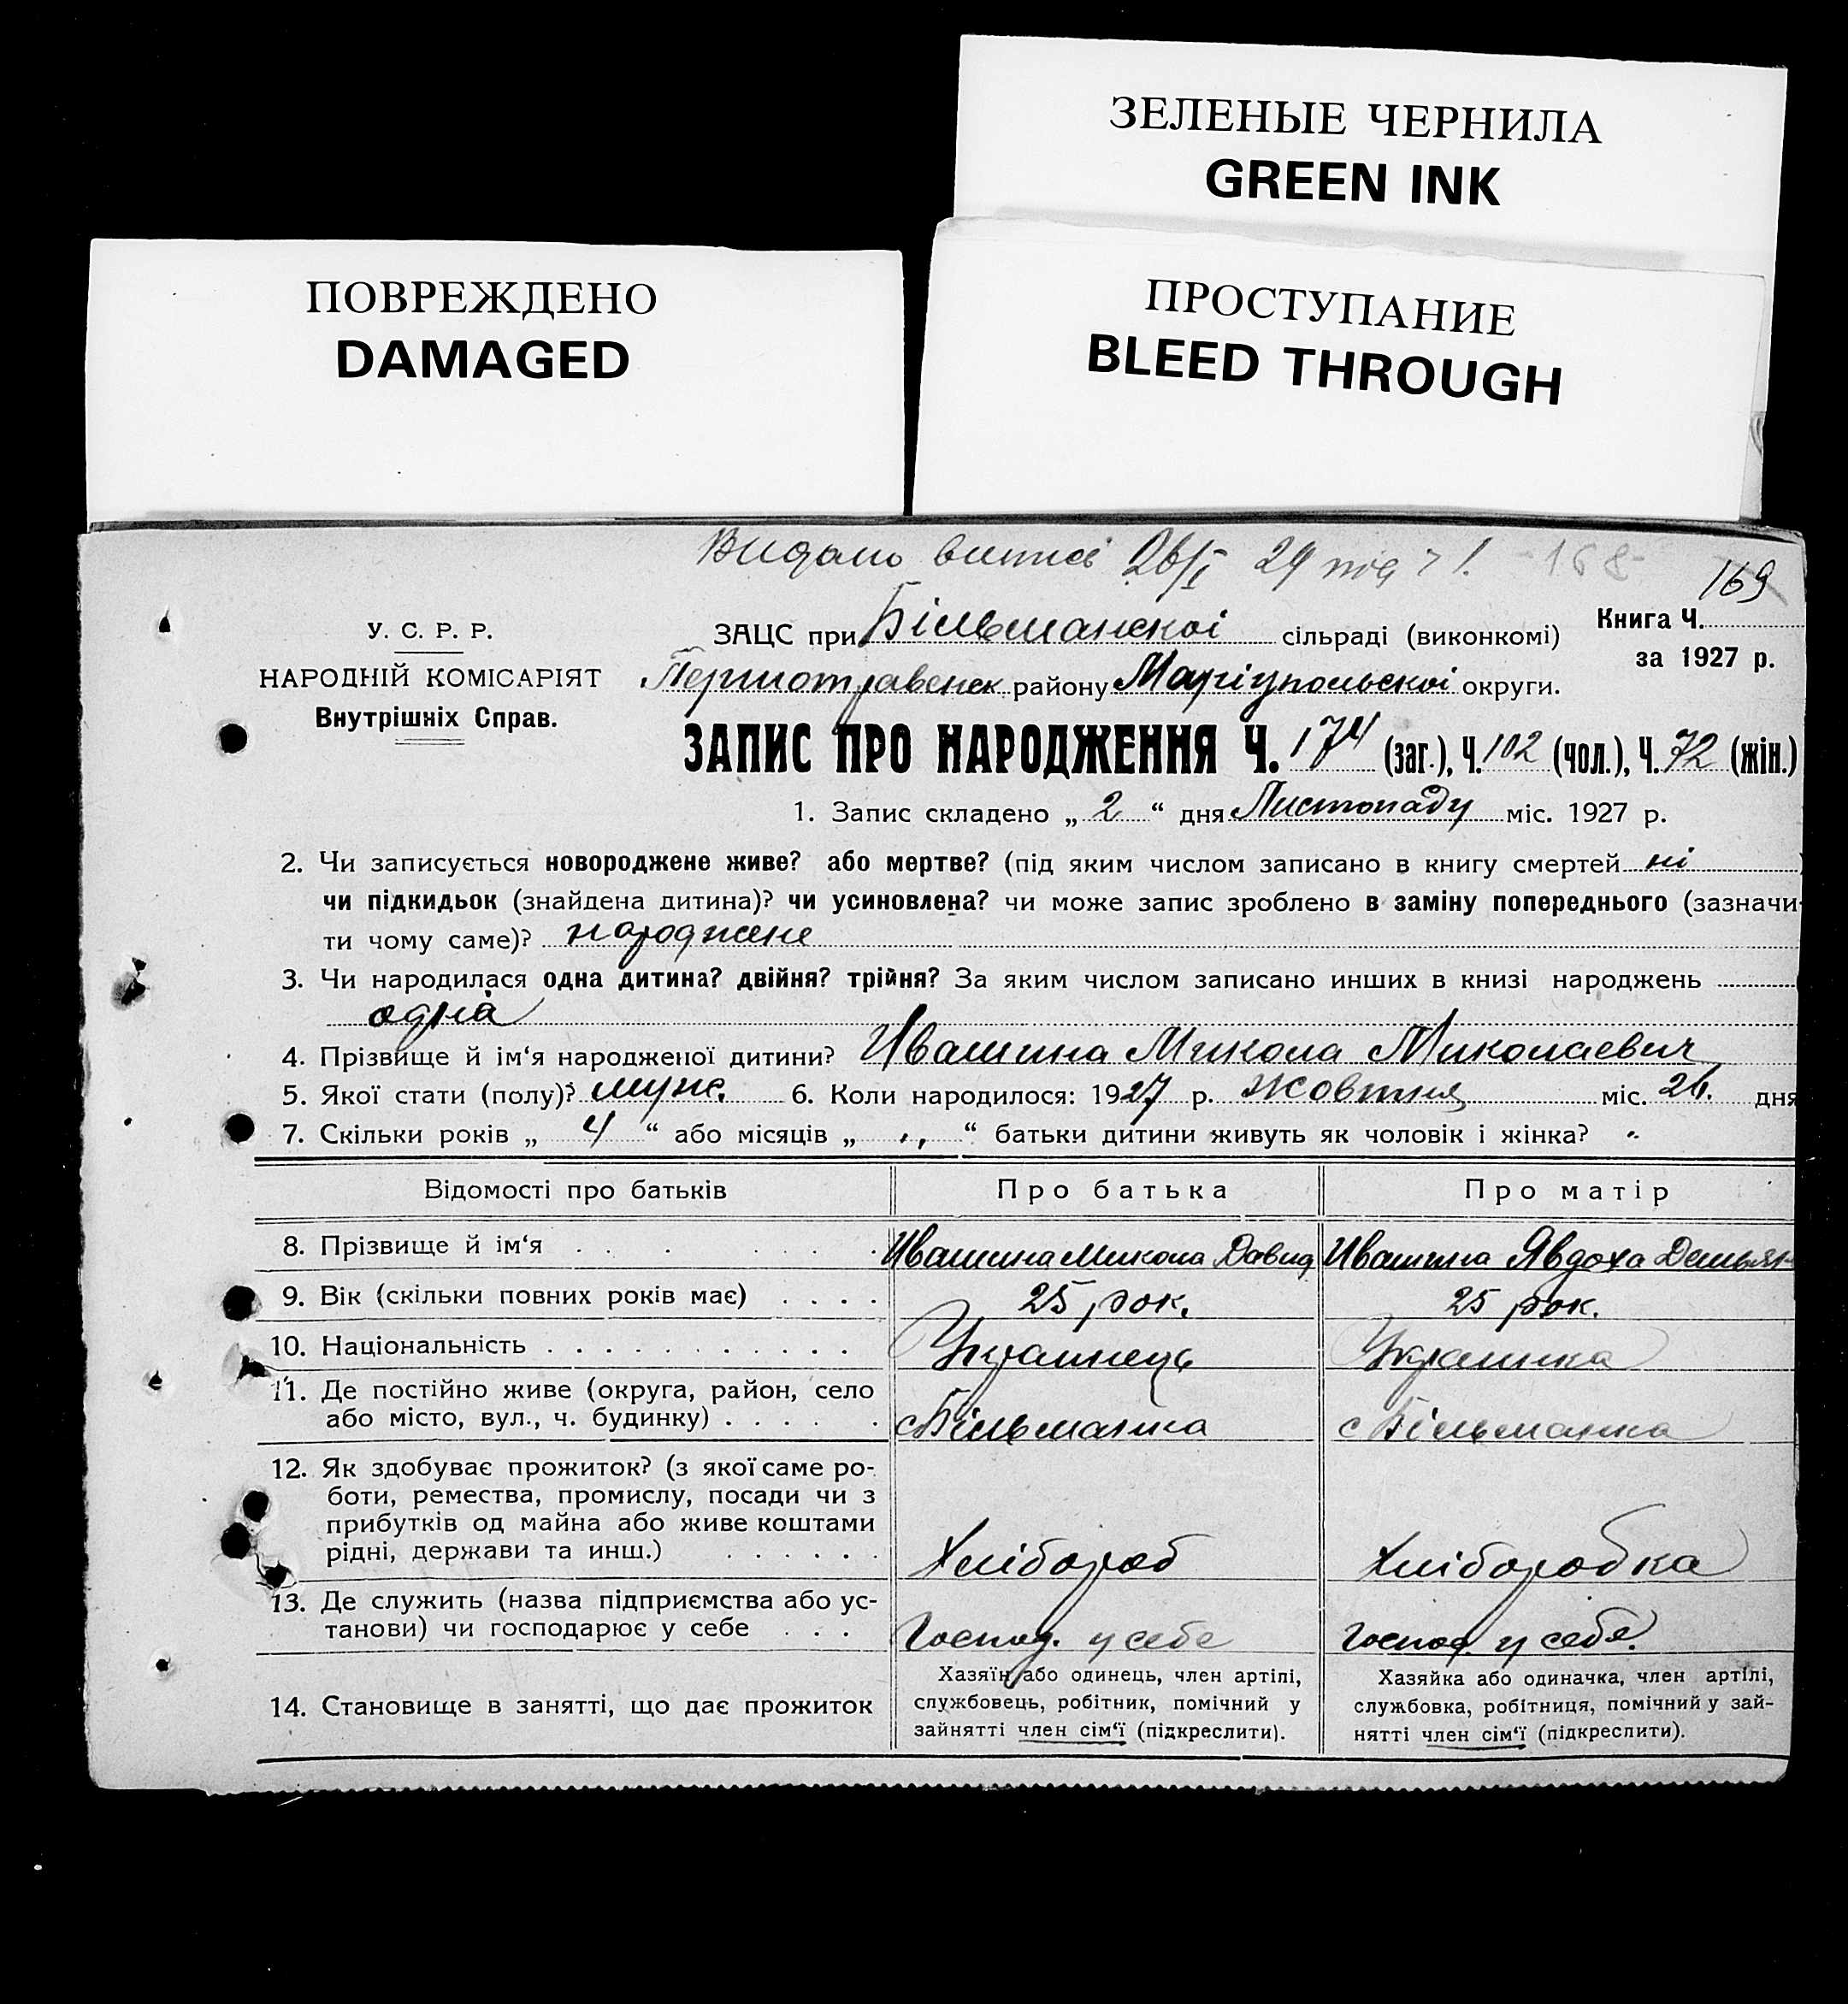 ЗЕЛЕНЫЕ ЧЕРНИЛА
GREEN INK
ПОВРЕЖДЕНО
DAMAGED
ПРОСТУПАНИЕ
BLEED THROUGH
Видано 26/I 29
168
169
У. С. Р. Р.
НАРОДНІЙ КОМІСАРІЯТ
Внутрішніх Справ.
ЗАЦС при Більманскої сільраді (виконкомі)
Книга Ч.
за 1927 р.
Першотравенск району Маріупольскої округи.
ЗАПИС ПРО НАРОДЖЕННЯ Ч. 174 (заг.), Ч. 102 (чол.), Ч. 72 (жін.)
1. Запис складено „ 2 “ дня Листопаду міс. 1927 р.
2. Чи записується новороджене живе? або мертве? (під яким числом записано в книгу смертей ні )
чи підкидьок (знайдена дитина)? чи усиновлена? чи може запис зроблено в заміну попереднього (зазначи-
ти чому саме)? народжене
3. Чи народилася одна дитина? двійня? трійня? За яким числом записано инших в книзі народжень
одна
4. Прізвище й ім‘я народженої дитини? Ивашина Микола Миколаевич
5. Якої стати (полу)? муж. 6. Коли народилося: 1927 р. жовтня міс. 26. дня
7. Скільки років „ 4 “ або місяців „ „ “ батьки дитини живуть як чоловік і жінка? „
Відомості про батьків
Про батька
Про матір
8. Прізвище й ім‘я
Ивашина Микола Давид
Ивашина Явдоха Демьян
9. Вік (скільки повних років має)
25 рок.
25 рок.
10. Національність
Украинець
Украинка
11. Де постійно живе (округа, район, село
або місто, вул., ч. будинку)
с Більманка
с Більманка
12. Як здобуває прожиток? (з якої саме ро-
боти, ремества, промислу, посади чи з
прибутків од майна або живе коштами
рідні, держави та инш.)
Хлібороб
Хліборобка
13. Де служить (назва підприємства або ус-
танови) чи господарює у себе
Господ. у себе
Господ. у себе.
14. Становище в занятті, що дає прожиток
Хазяїн або одинець, член артілі,
службовець, робітник, помічний у
зайнятті член сім‘ї (підкреслити).
Хазяйка або одиначка, член артілі,
службовка, робітниця, помічний у зай-
нятті член сім‘ї (підкреслити).